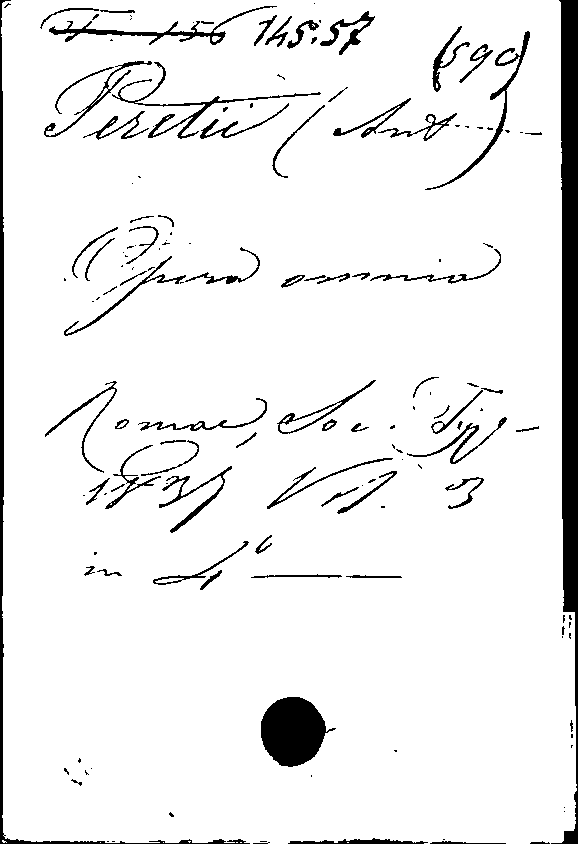 F. 156 145.57
(590)
Peretii (Ant)
Opera omnia
Romae, Soc. Typ-
1837 Vol. 3
in 4°